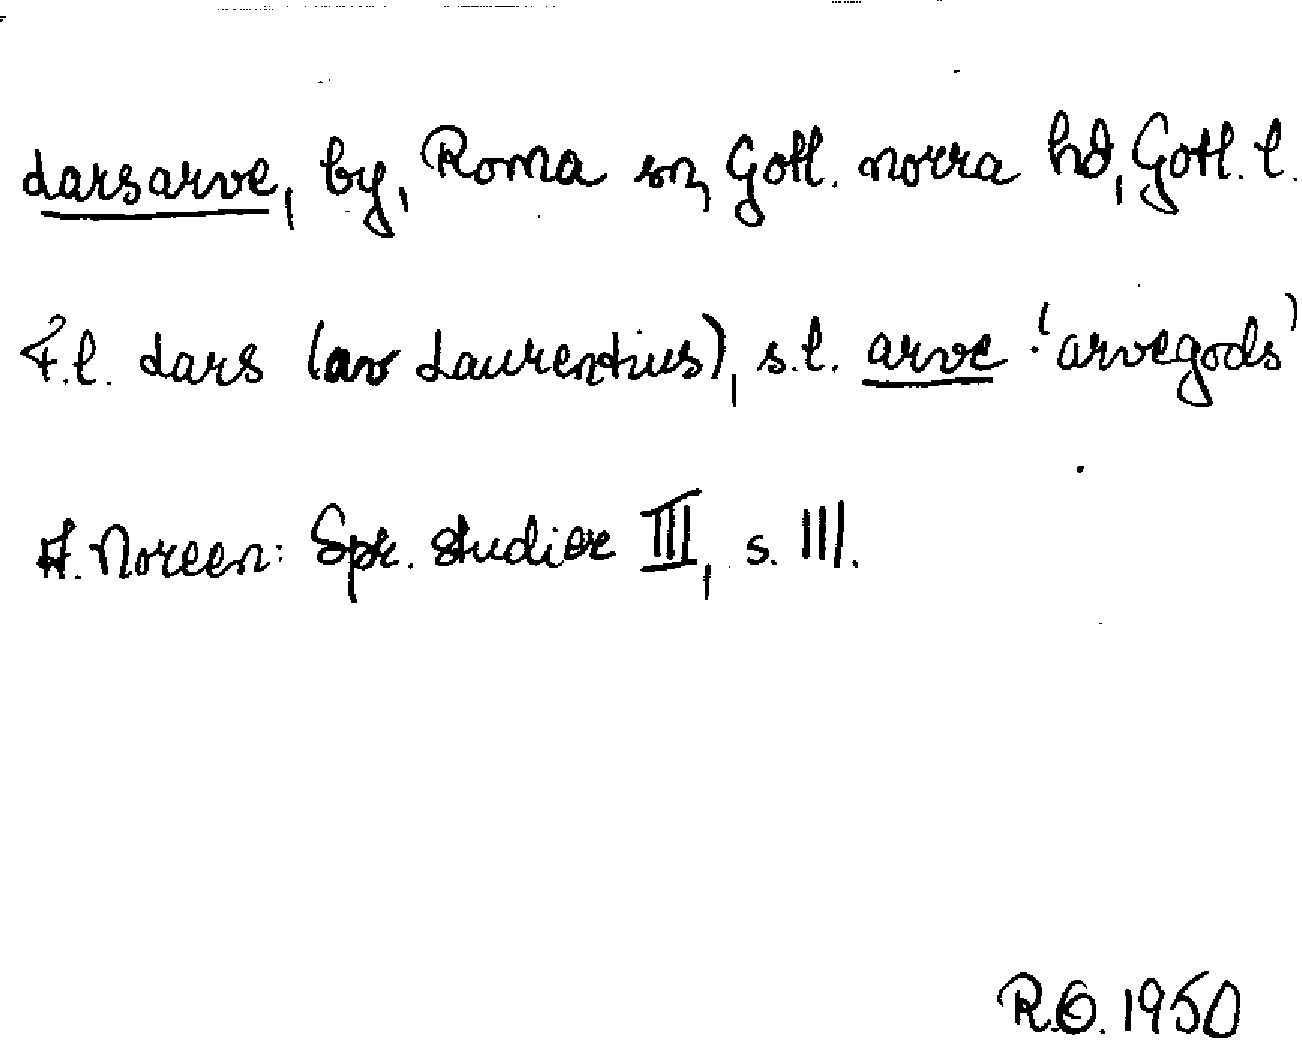 Larsarve, by, Roma sn, Gotl. norra hd, Gotl. l.
F.l. Lars (av Laurentius), s.l. arve 'arvegods'
A. Noreen: Spr. studier III, s. 111.
R.O. 1950